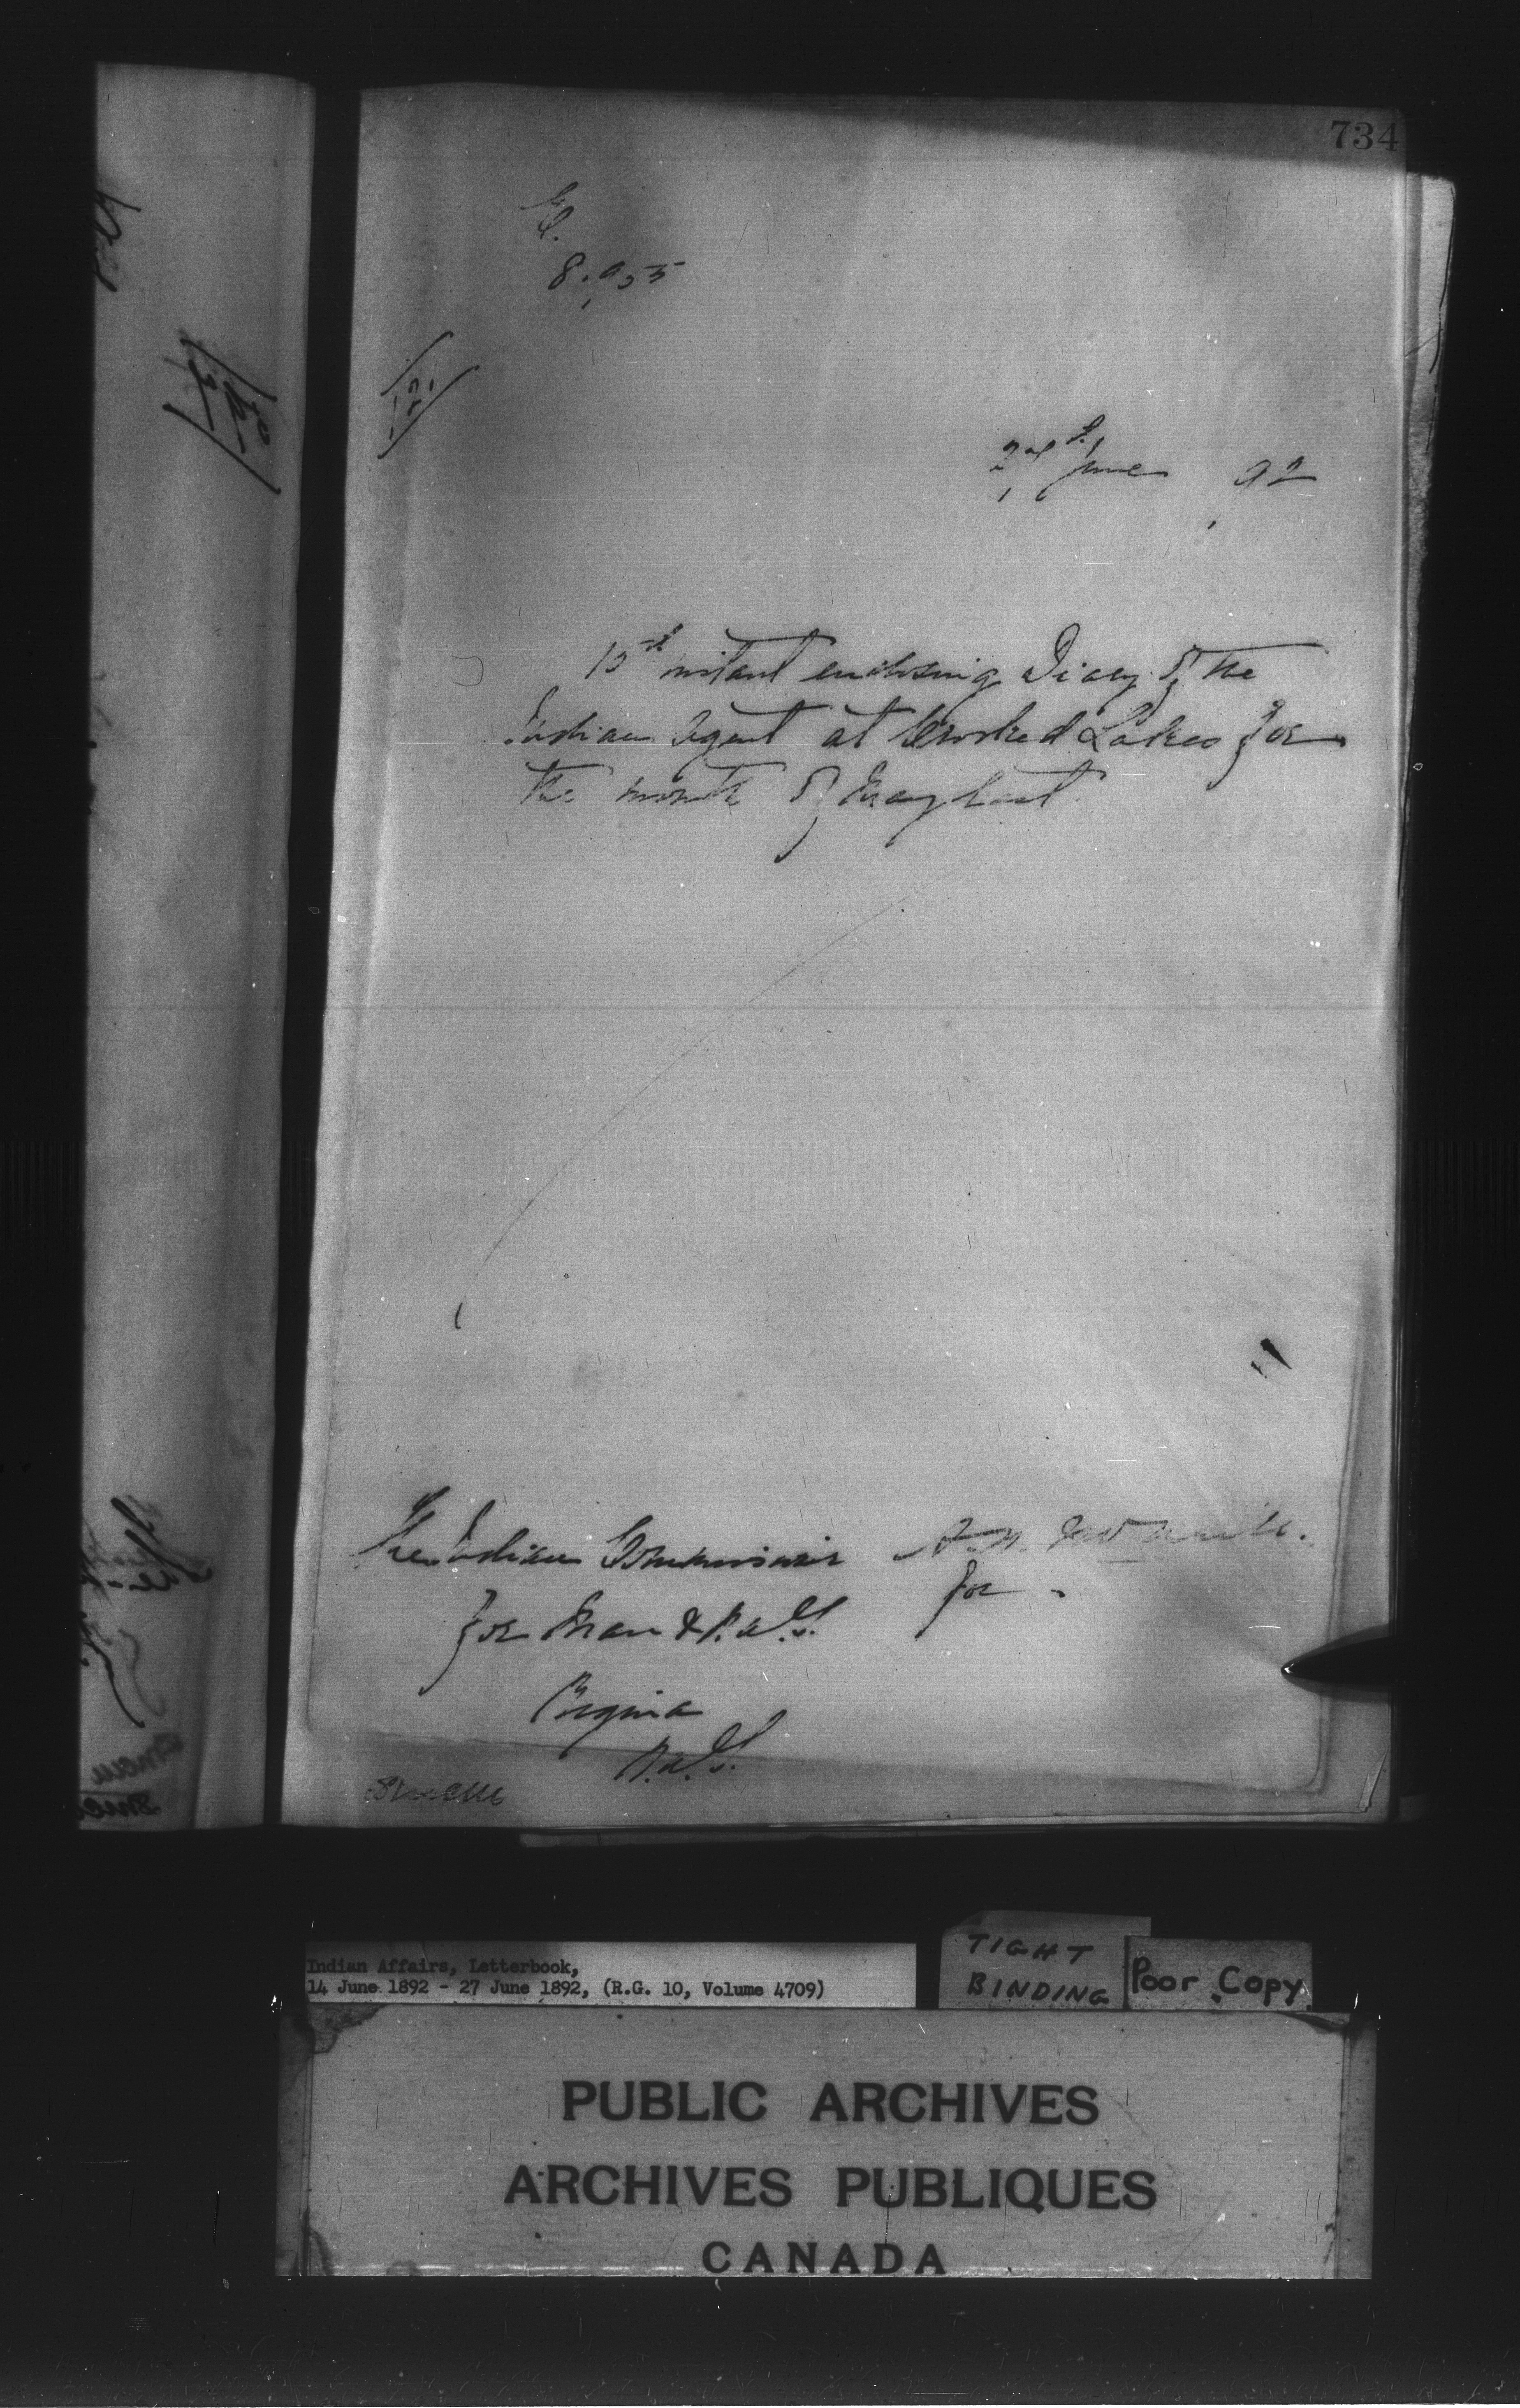 734
June, 92
instant enclosing Diary of the
Indian Agent at Crooked Lakes for
the month of May last.
The Indian Commissioner
for Man & N.W.T.
for
Regina
N.W.T.
Indian Affairs, Letterbook,
14 June 1892 - 27 June 1892, (R.G. 10, Volume 4709)
TIGHT
BINDING
Poor Copy.
PUBLIC ARCHIVES
ARCHIVES PUBLIQUES
CANADA